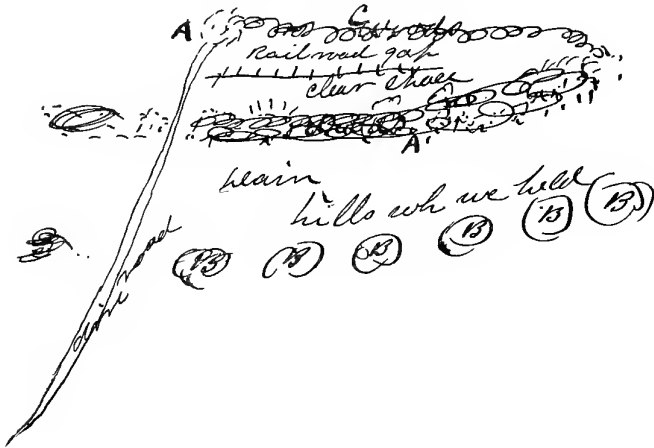 C
A woods
Railroad gap
clear space
woods
A
plain
hills wh we held
B B B B B B
dirt road